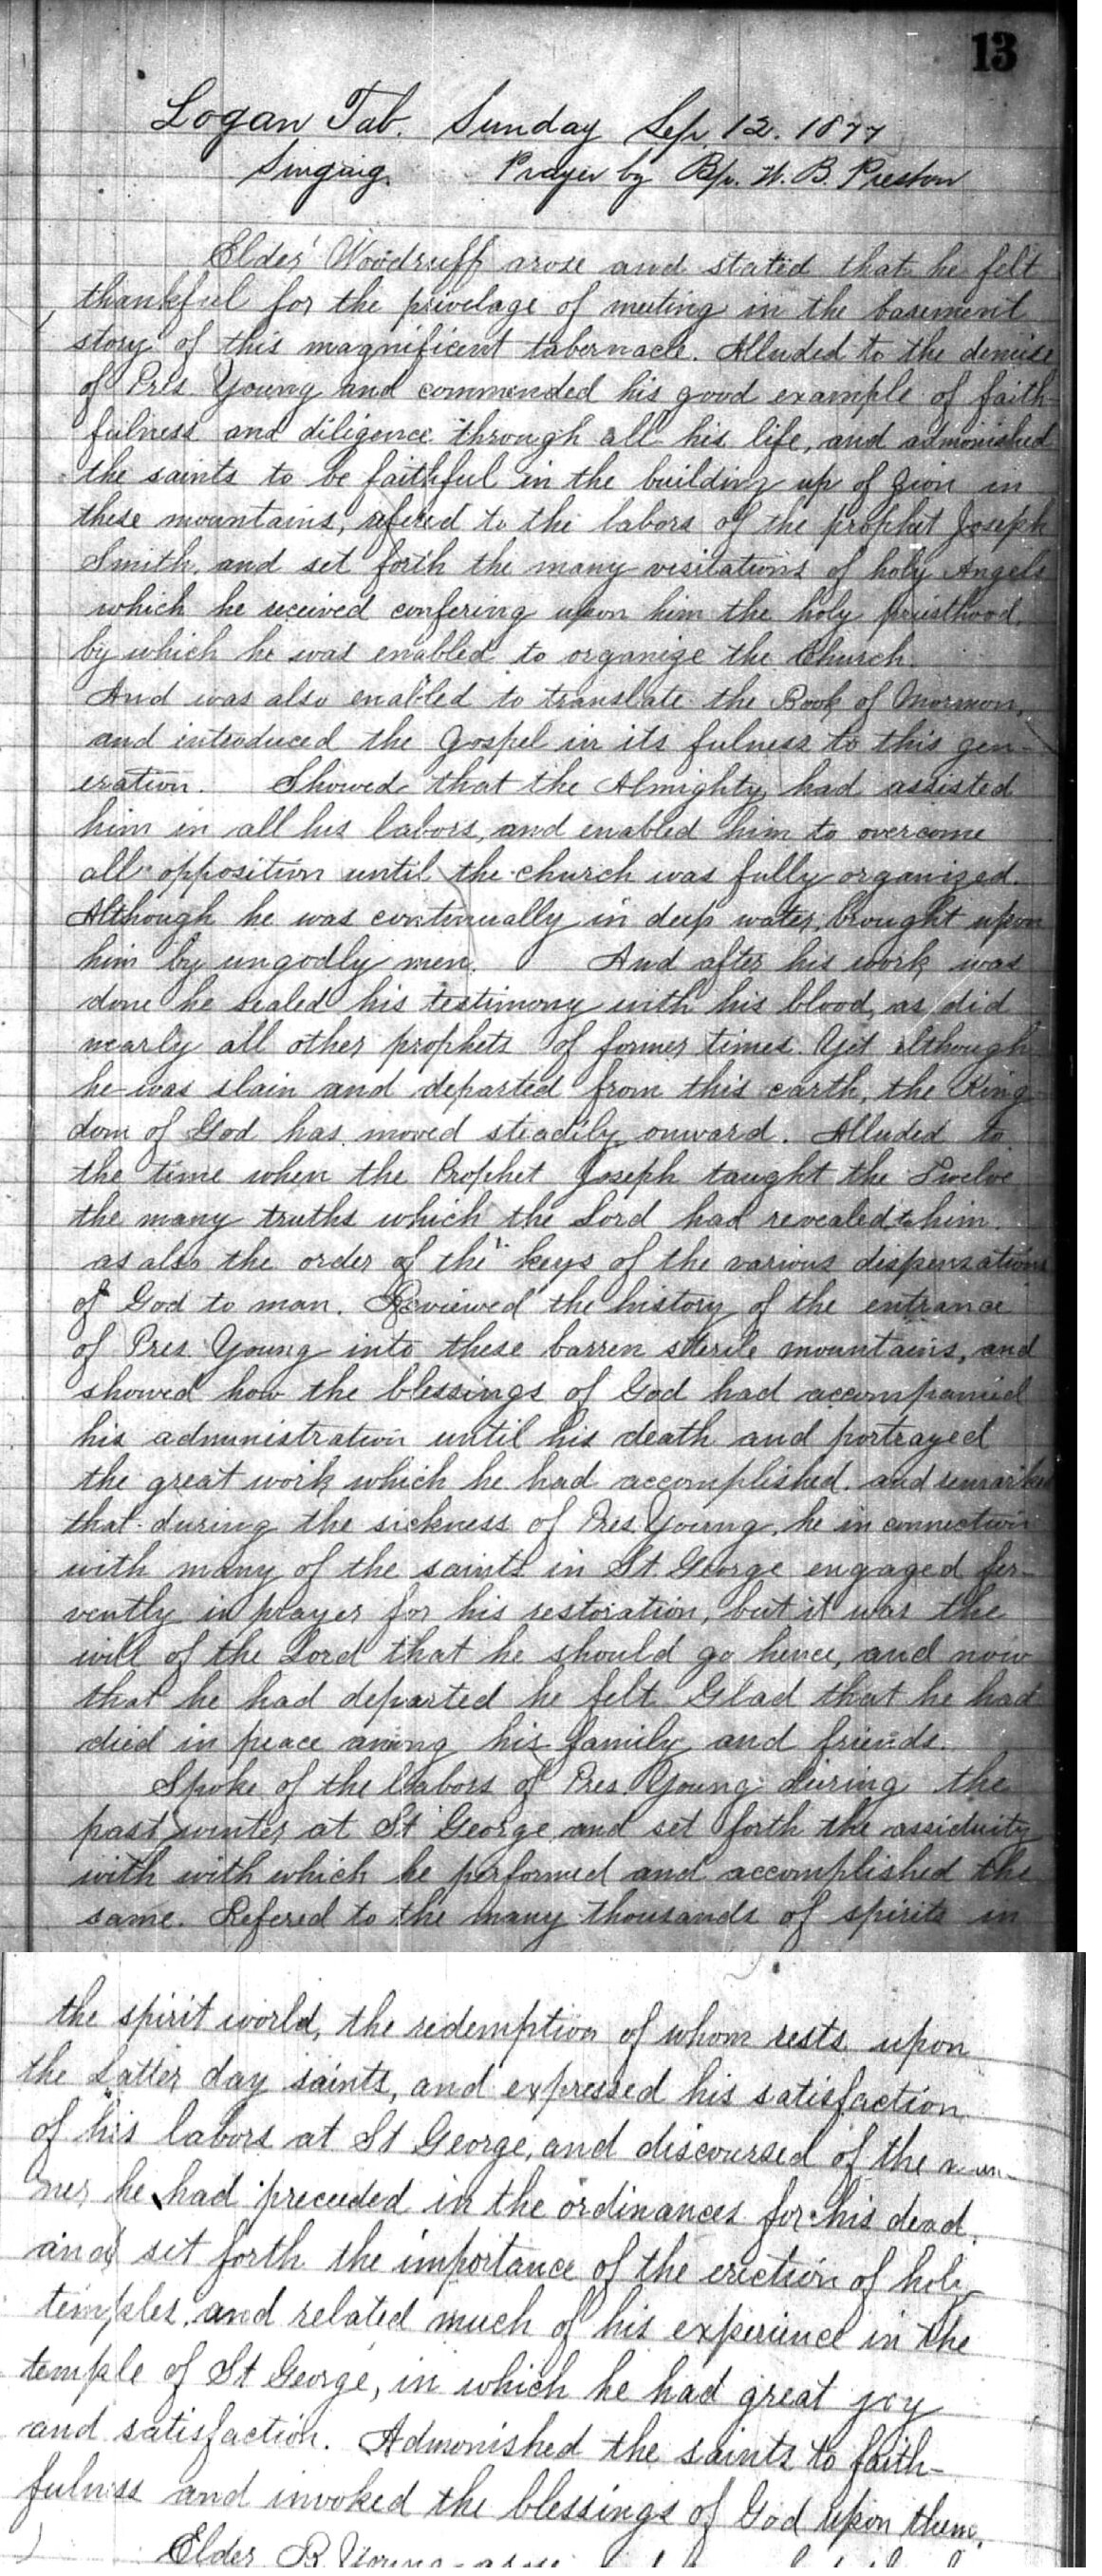 13
Logan Tab. Sunday Sep. 12. 1877
Singing. Prayer by Bp. W. B. Preston
Elder Woodruff arose and stated that he felt
thankful for the privelage of meeting in the basement
story of this magnificent tabernacle. Alluded to the demise
of Pres. Young and commended his good example of faith-
fulness and diligence through all his life, and admonished
the saints to be faithful in the building up of Zion in
these mountains, refered to the labors of the prophet Joseph
Smith, and set forth the many visitations of holy Angels
which he received confering upon him the holy priesthood,
by which he was enabled to organize the Church.
And was also enabled to translate the Book of Mormon,
and introduced the Gospel in its fulness to this gen-
eration. Showed that the Almighty had assisted
him in all his labors, and enabled him to overcome
all opposition until the church was fully organized.
Although he was continually in deep water, brought upon
him by ungodly men. And after his work was
done he sealed his testimony with his blood, as did
nearly all other prophets of former times. Yet although
he was slain and departed from this earth, the King
dom of God has moved steadily onward. Alluded to
the time when the Prophet Joseph taught the Twelve
the many truths which the Lord had revealed to him.
as also the order of the keys of the various dispensations
of God to man. Reviewed the history of the entrance
of Pres. Young into these barren sterile mountains, and
showed how the blessings of God had accompanied
his administration until his death and portrayed
the great work which he had accomplished. and remarked
that during the sickness of Pres. Young, he in connection
with many of the saints in St. George engaged fer-
vently in prayer for his restoration, but it was the
will of the Lord that he should go hence, and now
that he had departed he felt Glad that he had
died in peace among his family and friends.
Spoke of the labors of Pres. Young during the
past winter at St George and set forth the assiduity
with with which he performed and accomplished the
same. Refered to the many thousands of spirits in
the spirit world, the redemption of whom rests upon
the Latter day saints, and expressed his satisfaction
of his labors at St George, and discoursed of the man-
ner he had preceeded in the ordinances for his dead,
and set forth the importance of the erection of holy
temples, and related much of his experience in the
temple of St George, in which he had great joy
and satisfaction. Admonished the saints to faith-
fulness and invoked the blessings of God upon them.
Elder B Young arose